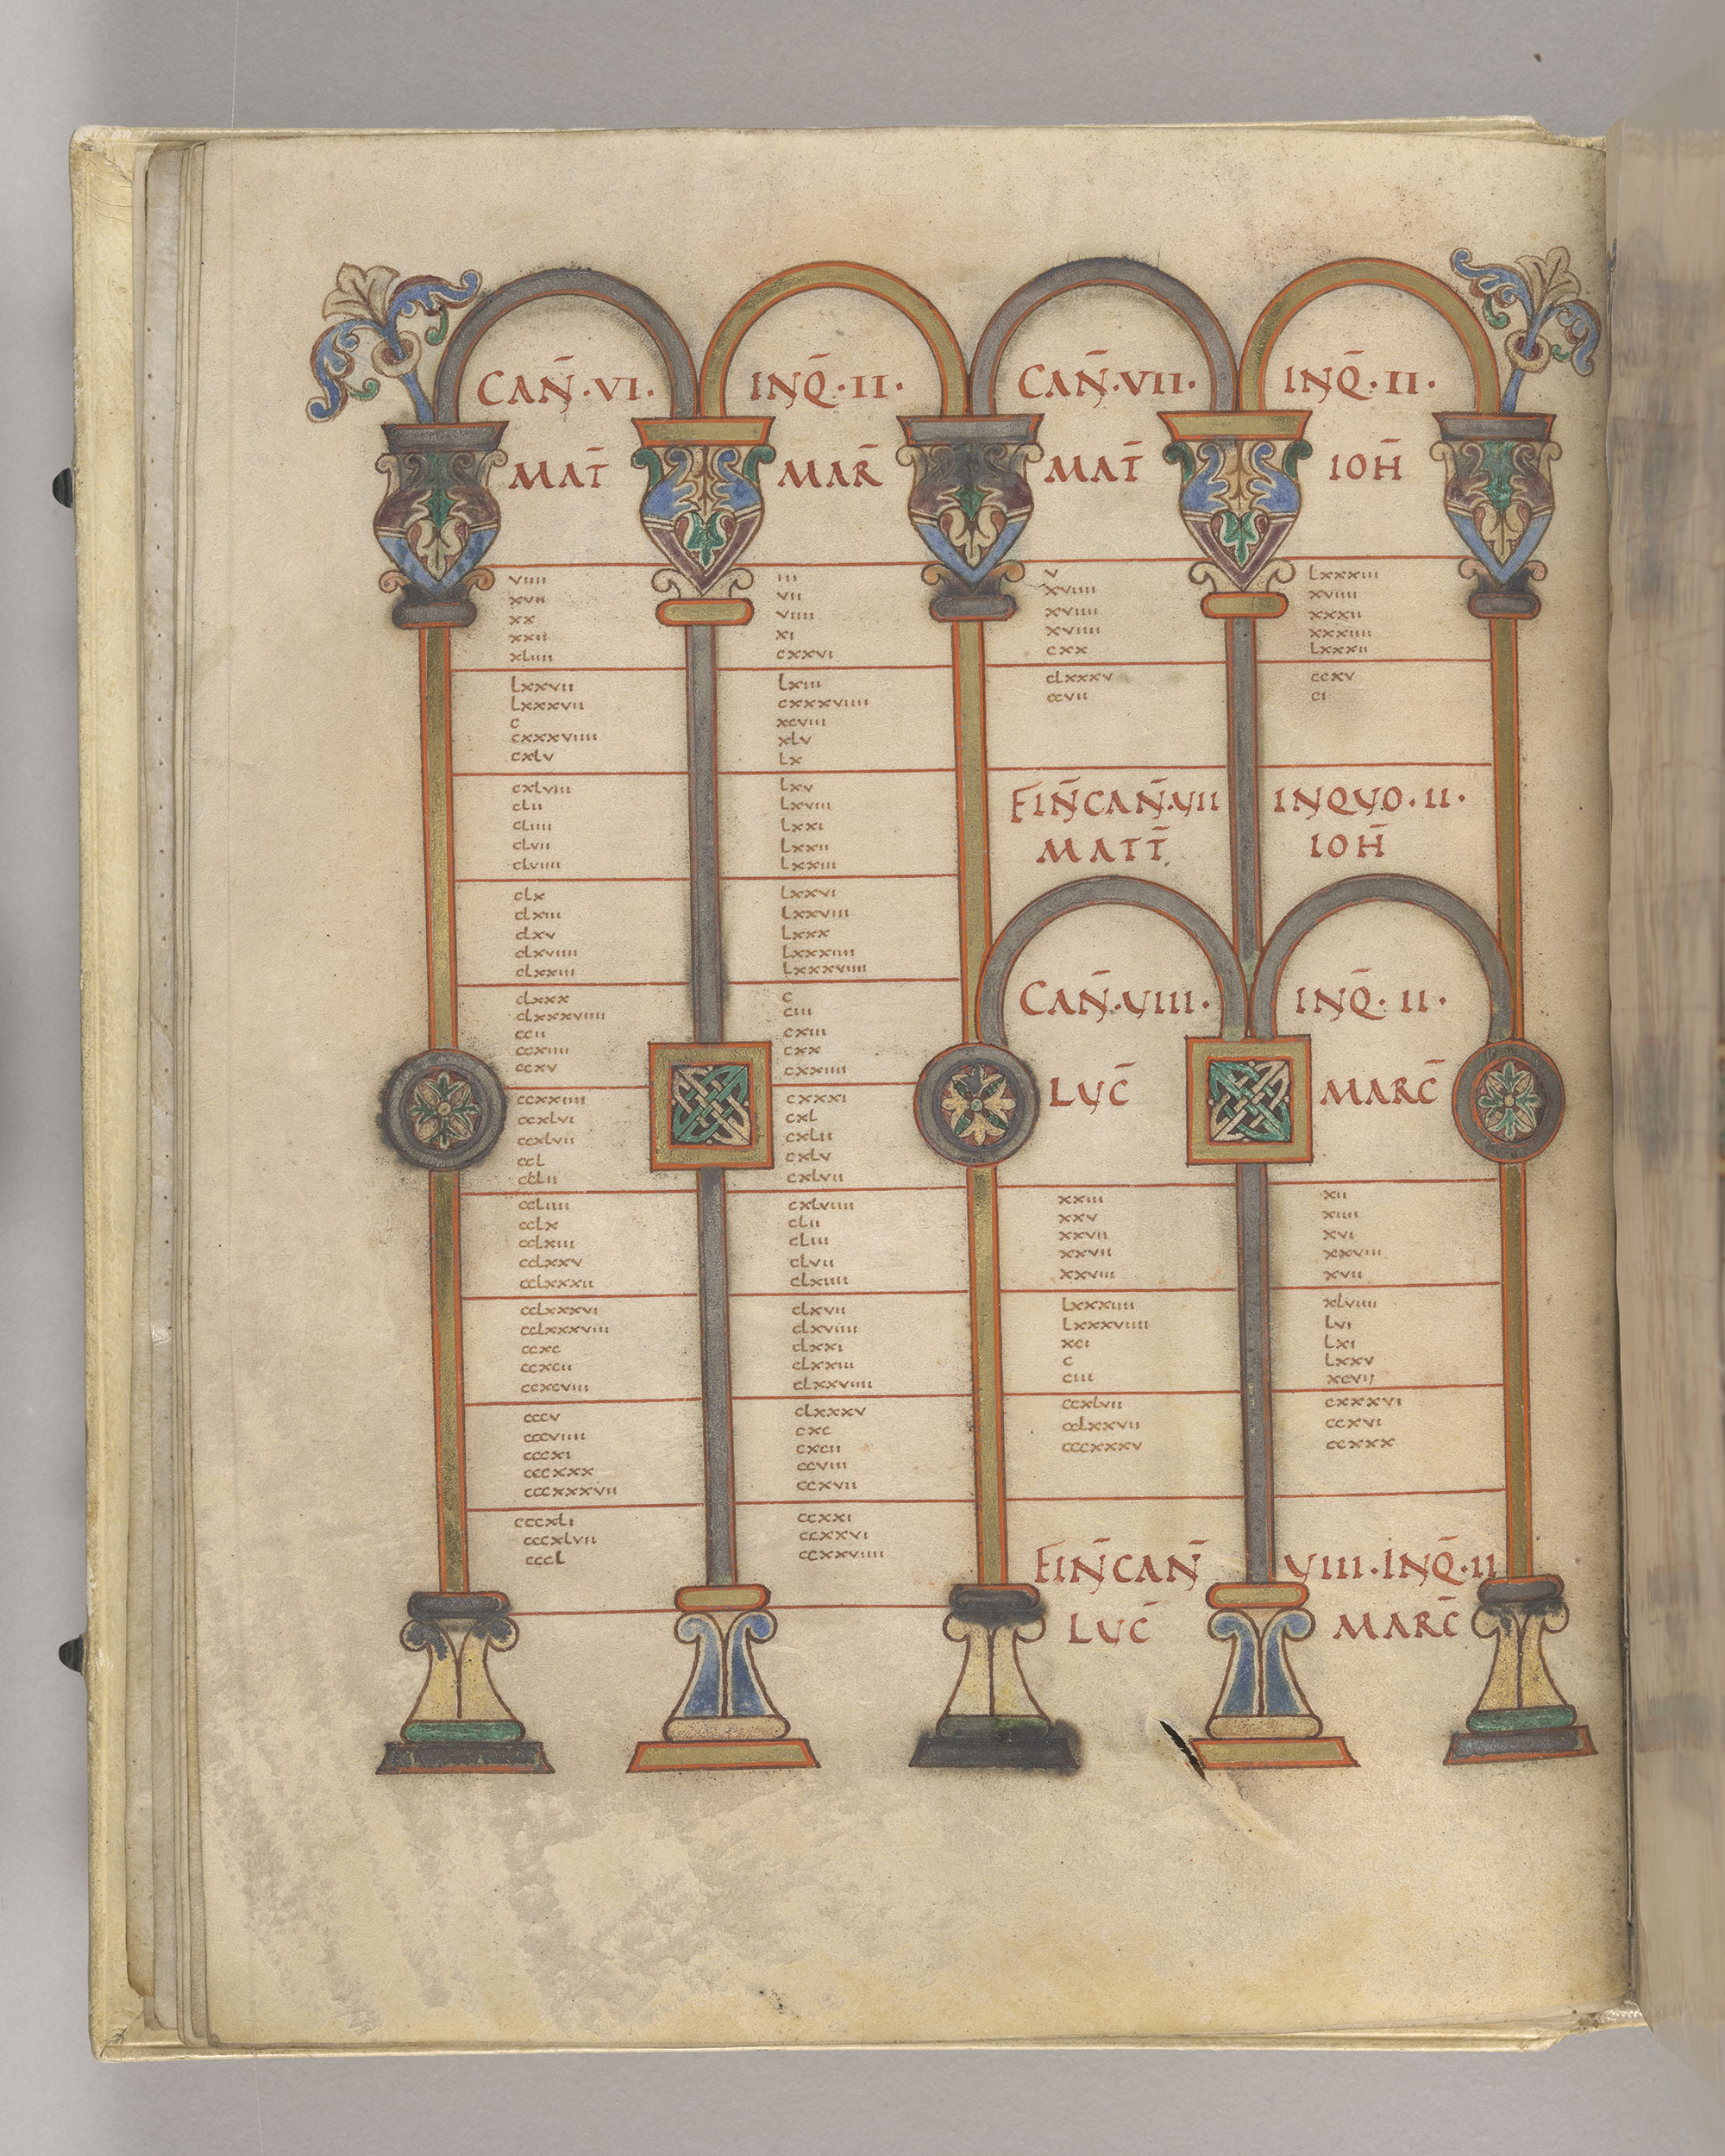 CAN̄·VI· INQ̄·II·
MAT̄ MAR̄
viiii iii
xvii vii
xx viiii
xxii xi
xliiii cxxvi
lxxvii lxiii
lxxxvii cxxxviiii
c xcviii
cxxxviiii xlv
cxlv lx
cxlviii lxv
clii lxviii
cliiii lxxi
clvii lxxii
clviiii lxxiii
clx lxxvi
clxiii lxxviii
clxv lxxx
clxviiii lxxxiiii
clxxiii lxxxviiii
clxxx c
clxxxviiii ciii
ccii cxiii
ccxiiii cxx
ccxv cxxiiii
ccxxiiii cxxxi
ccxlvi cxl
ccxlvii cxlii
ccl cxlv
cclii cxlvii
ccliiii cxlviiii
cclx clii
cclxiii cliii
cclxxv clvii
cclxxxii clxiiii
cclxxxvi clxvii
cclxxxviii clxviiii
ccxc clxxi
ccxcii clxxiii
ccxcviii clxxviiii
cccv clxxxv
cccviiii cxc
cccxi cxcii
cccxxx ccviii
cccxxxvii ccxvii
cccxli ccxxi
cccxlvii ccxxvi
cccl ccxxviiii
CAN̄·VII· INQ̄·II·
MAT̄ IOH̄
v lxxxiii
xviiii xviiii
xviiii xxxii
xviiii xxxiiii
cxx lxxxii
clxxxv ccxv
ccvii ci
FIN̄CAN̄·VII INQVO·II·
MATT̄ IOH̄
CAN̄·VIII· INQ̄·II·
LVC̄ MARC̄
xxiii xii
xxv xiiii
xxvii xvi
xxvii xxviii
xxviii xvii
lxxxiiii xlviiii
lxxxviiii lvi
xci lxi
c lxxv
ciii xcvii
ccxlvii cxxxvi
cclxxvii ccxvi
cccxxxv ccxxx
FIN̄CAN̄ VIII·INQ̄·II
LVC̄ MARC̄